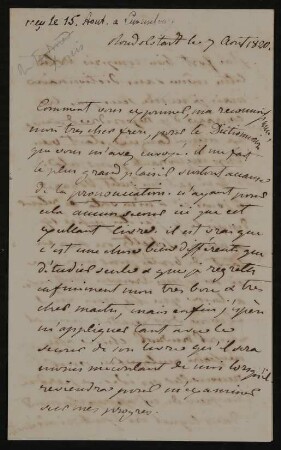 reçu le 15. Aout. a
Roudolstadt le 7 Août 1820.
Comment vous exprimer, ma reconnais-
mon très cher frère, pour le Dictionnaire
que vous m'avez envoyé. il me fait
le plus grand plaisir surtout à cause
de la prononciation. n'ayant pour
cela aucun secours ici que cet
excellent livre. il est vrai que
c'est une chose bien différente que
d'étudier seule et que je regrette
infiniment mon très bon & très
cher maitre, mais enfin j'espère
m'appliquer tant avec le
secours de son livre qu'il sera
moins mécontent de moi lorsqu'il
reviendra pour m'examiner
sur mes progrès.